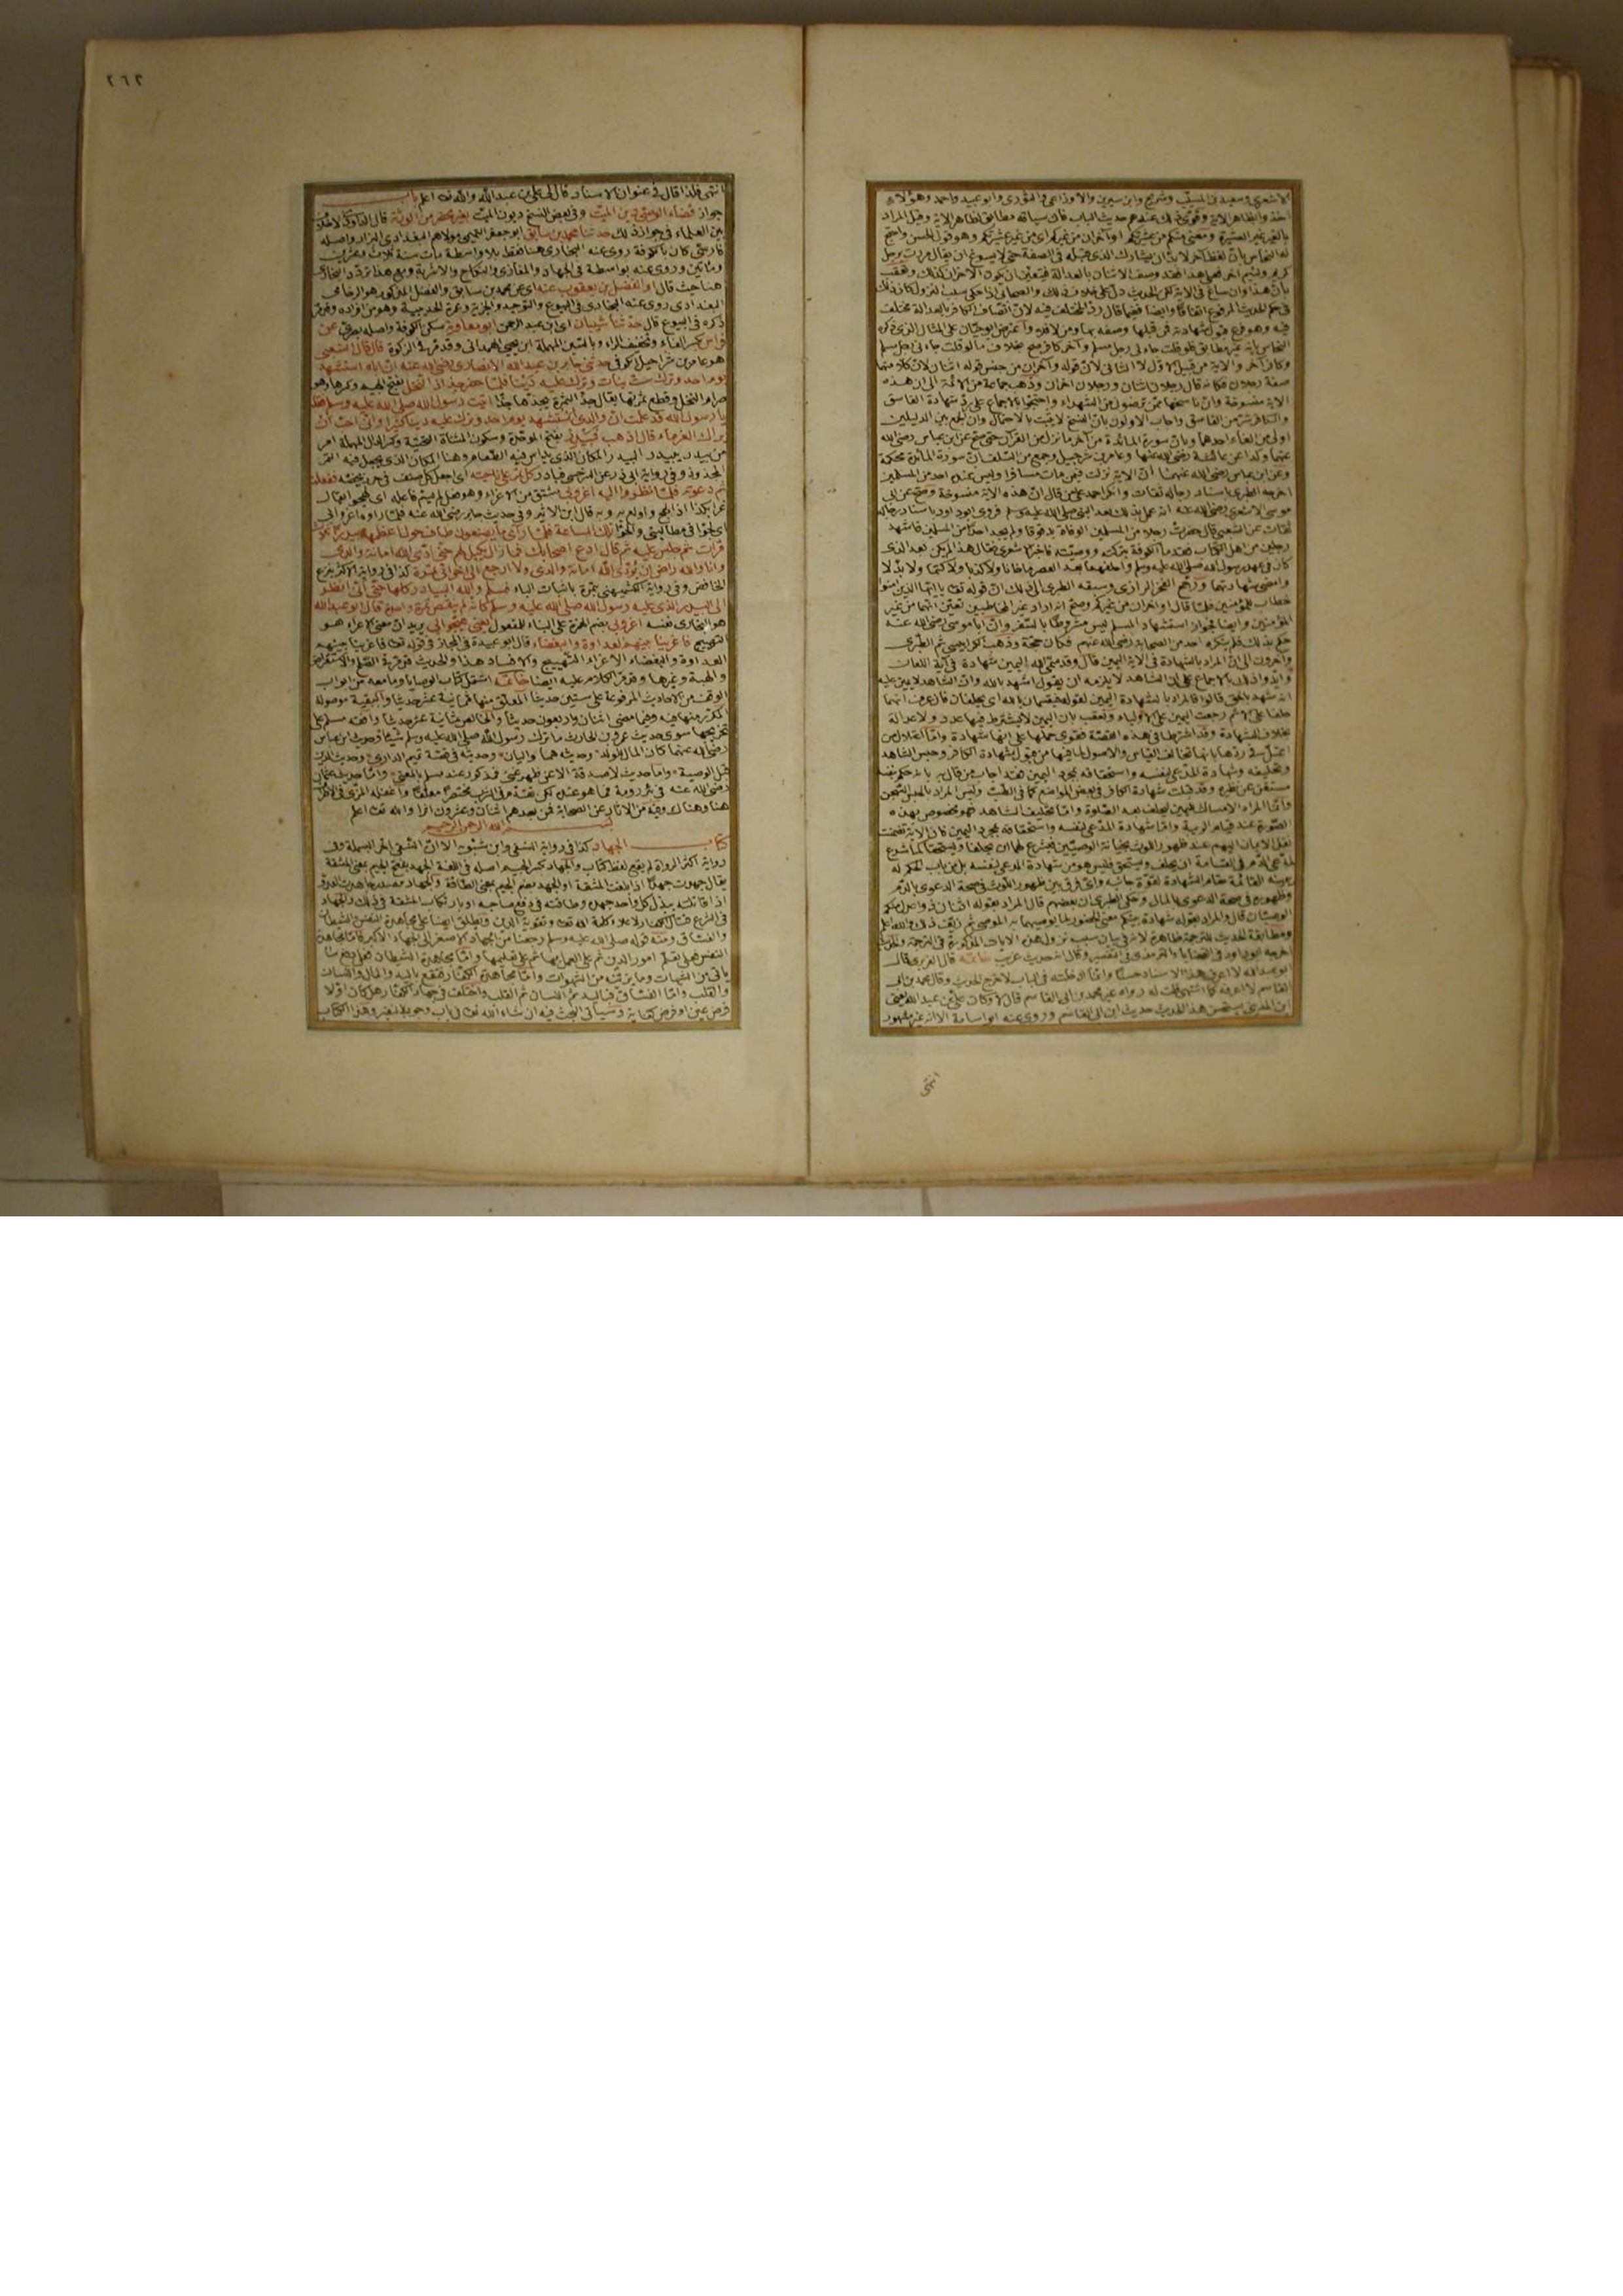 الاشعري وسعيد بن المسيب وشريح وابن سيرين والاوزاعي والثوري وابو عبيد واحمد وهؤلاء
اخذوا بظاهر الاية وقوى ذلك عندهم حديث الباب فان سياقه مطابق لظاهر الاية وقيل المراد
بالغير غير العشيرة ومعنى منكم من عشيرتكم او آخران من غيركم اي من غير عشيرتكم وهو قول الحسن واحتج
له النحاس بان لفظ آخر لا بد ان يشارك الذي قبله في الصفة حتى لا يسوغ ان يقال مررت برجل
كريم ولئيم آخر فعلى هذا فقد وصف الاثنان بالعدالة فيتعين ان يكون الآخران كذلك وتعقب
بان هذا وان ساغ في الاية لكن الحديث دل على خلاف ذلك والصحابي اذا حكى سبب النزول كان ذلك
في حكم الحديث المرفوع اتفاقا وايضا ففيما قال رد المختلف فيه لان اتصاف الكافر بالعدالة مختلف
فيه وهو فرع قبول شهادته فمن قبلها وصفه بها ومن لا فلا واعترض ابو حيان على المثال الذي ذكره
النحاس بانه غير مطابق فلو قلت جاءني رجل مسلم وآخر كافر صح بخلاف ما لو قلت جاءني رجل مسلم
وكافر آخر والاية من قبيل الاول لا الثاني لان قوله او آخران من جنس قوله اثنان لان كلا منهما
صفة رجلان فكانه قال رجلان اثنان ورجلان آخران وذهب جماعة من الائمة الى ان هذه
الاية منسوخة وان ناسخها ممن ترضون من الشهداء واحتجوا بالاجماع على رد شهادة الفاسق
والكافر شر من الفاسق واجاب الاولون بان النسخ لا يثبت بالاحتمال وان الجمع بين الدليلين
اولى من الغاء احدهما وبان سورة المائدة من آخر ما نزل من القرآن حتى صح عن ابن عباس رضي الله
عنهما وكذا عن عائشة رضي الله عنها وعمرو بن شرحبيل وجمع من السلف ان سورة المائدة محكمة
وعن ابن عباس رضي الله عنهما ان الاية نزلت فيمن مات مسافرا وليس عنده احد من المسلمين
اخرجه الطبري باسناد رجاله ثقات وانكر احمد على من قال ان هذه الاية منسوخة وصح عن ابي
موسى الاشعري رضي الله عنه انه عمل بذلك بعد النبي صلى الله عليه وسلم فروى ابو داود باسناد رجاله
ثقات عن الشعبي قال حضرت رجلا من المسلمين الوفاة بدقوقا ولم يجد احدا من المسلمين فاشهد
رجلين من اهل الكتاب فقدما الكوفة بتركته ووصيته فاخبر الاشعري فقال هذا لم يكن بعد الذي
كان في عهد رسول الله صلى الله عليه وسلم واحلفهما بعد العصر ما خانا ولا كذبا ولا كتما ولا بدلا
وامضى شهادتهما ورجح الفخر الرازي وسبقه الطبري الى ذلك ان قوله تعالى يا ايها الذين آمنوا
خطاب للمؤمنين فلما قال او آخران من غيركم وضح انه اراد غير المخاطبين تعين انهما من غير
المؤمنين وايضا فجواز استشهاد المسلم ليس مشروطا بالسفر وان ابا موسى رضي الله عنه
حكم بذلك فلم ينكره احد من الصحابة رضي الله عنهم فكان حجة وذهب الكرابيسي ثم الطبري
وآخرون الى ان المراد بالشهادة في الاية اليمين قال وقد سمى الله اليمين شهادة في آية اللعان
وايدوا ذلك بالاجماع على ان الشاهد لا يلزمه ان يقول اشهد بالله وان الشاهد لا يمين عليه
انه شهد بالحق قالوا فالمراد بالشهادة اليمين لقوله فيقسمان بالله اي يحلفان فان عرف انهما
حلفا على الاثم رجعت اليمين على الاولياء وتعقب بان اليمين لا يشترط فيها عدد ولا عدالة
بخلاف الشهادة وقد اشترطا في هذه القصة فقوى حملها على انها شهادة واما اعتلال من
اعتل في ردها بانها تخالف القياس والاصول لما فيها من قبول شهادة الكافر وحبس الشاهد
وتحليفه وشهادة المدعي لنفسه واستحقاقه بمجرد اليمين فقد اجاب من قال به بانه حكم بنفسه
مستغن عن نظيره وقد قبلت شهادة الكافر في بعض المواضع كما في الطب وليس المراد بالحبس السجن
وانما المراد الامساك لليمين ليحلف بعد الصلوة واما تحليف الشاهد فهو مخصوص بهذه
الصورة عند قيام الريبة واما شهادة المدعي لنفسه واستحقاقه بمجرد اليمين فان الاية تضمنت
نقل الايمان اليهم عند ظهور اللوث بخيانة الوصيين فيشرع لهما ان يحلفا ويستحقا كما شرع
لمدعي الدم في القسامة ان يحلف ويستحق فليس هو من شهادة المدعي لنفسه بل من باب الحكم له
بيمينه القائمة مقام الشهادة لقوة جانبه واي فرق بين ظهور اللوث في صحة الدعوى بالدم
وظهوره في صحة الدعوى بالمال وحكى الطبري ان بعضهم قال المراد بقوله اثنان ذوا عدل منكم
الوصيان قال والمراد بقوله شهادة بينكم معنى الحضور لما يوصيهما به الموصي ثم زيف ذلك والله اعلم
ومطابقة الحديث للترجمة ظاهرة لانه في بيان سبب نزول هذه الايات المذكورة في الترجمة والحديث
اخرجه ابو داود في القضايا والترمذي في التفسير وقال انه حديث غريب خاتمة قال الفربري قال
ابو عبد الله لا اعرف هذا الاسناد حسنا وانما ادخلته في الباب لاخرج الحديث وقال محمد بن ابي
القاسم لا اعرفه كما اشتهي قلت له رواه غير محمد بن ابي القاسم قال لا وكان علي بن عبد الله يعني
ابن المديني يستحسن هذا الحديث حديث ابن ابي القاسم وروى عنه ابو اسامة الا انه غير مشهور
انتهى
٢٦٢
انتهى فلذا قال في عنوان الاسناد قال لي علي بن عبد الله والله تعالى اعلم باب
جواز قضاء الوصي دين الميت وفي بعض النسخ ديون الميت بغير محضر من الورثة قال الداودي لا خلاف
بين العلماء في جواز ذلك حدثنا محمد بن سابق ابو جعفر التميمي مولاهم البغدادي البزار واصله
فارسي كان بالكوفة روى عنه البخاري هنا فقط بلا واسطة مات سنة ثلاث وعشرين
ومائتين وروى عنه بواسطة في الجهاد والمغازي والنكاح والاشربة ومع هذا تردد البخاري
هنا حيث قال او الفضل بن يعقوب عنه اي عن محمد بن سابق والفضل المذكور هو الرخامي
البغدادي روى عنه البخاري في البيوع والتوحيد والجزية وعمرة الحديبية وهو من افراده ومر
ذكره في البيوع قال حدثنا شيبان اي ابن عبد الرحمن ابو معاوية سكن الكوفة واصله بصري عن
فراس بكسر الفاء وتخفيف الراء وبالسين المهملة ابن يحيى الهمداني وقد مر في الزكوة قال قال الشعبي
هو عامر بن شراحيل الكوفي حدثني جابر بن عبد الله الانصاري رضي الله عنه ان اباه استشهد
يوم احد وترك ست بنات وترك عليه دينا فلما حضر جذاذ النخل بفتح الجيم وكسرها وهو
صرام النخل وقطع ثمرتها يقال جذ الثمرة يجذها جذا اتيت رسول الله صلى الله عليه وسلم فقلت
يا رسول الله قد علمت ان والدي استشهد يوم احد وترك عليه دينا كثيرا واني احب ان
يراك الغرماء قال اذهب فبيدر بفتح الموحدة وسكون المثناة التحتية وكسر الدال المهملة امر
من بيدر يبيدر البيدر المكان الذي يداس فيه الطعام وهنا المكان الذي يجعل فيه التمر
المجذوذ وفي رواية ابي ذر عن السرخسي فبادر كل تمر على ناحيته اي اجعل كل صنف في جرين يخصه ففعلت
ثم دعوته فلما نظروا اليه اغروا بي مشتق من الاغراء وهو فعل لم يسم فاعله اي لهجوا يقال
غري بكذا اذا لهج به واولع به وبه قال ابن الاثير وفي حديث جابر رضي الله عنه فلما رأوه اغروا بي
اي لجوا في مطالبتي والحوا تلك الساعة فلما رأى ما يصنعون طاف حول اعظمها بيدرا ثلاث
مرات ثم جلس عليه ثم قال ادع اصحابك فما زال يكيل لهم حتى ادى الله امانة والدي
وانا والله راض ان يؤدي الله امانة والدي ولا ارجع الى اخواتي بتمرة كذا في رواية الاكثر بنزع
الخافض وفي رواية الكشميهني بتمرة باثبات الباء فسلم والله البيادر كلها حتى اني انظر
الى البيدر الذي عليه رسول الله صلى الله عليه وسلم كانه لم ينقص تمرة واحدة قال ابو عبد الله
هو البخاري نفسه اغروا بي بضم الهمزة على البناء للمفعول يعني هيجوا بي يريد ان معنى الاغراء هو
التهييج فاغرينا بينهم العداوة والبغضاء قال ابو عبيدة في المجاز في قوله تعالى فاغرينا بينهم
العداوة والبغضاء الاغراء التهييج والافساد هذا والحديث قد مر في الصلح والاستقراض
والهبة وغيرها ومر الكلام عليه ايضا خاتمة اشتمل كتاب الوصايا وما معه من ابواب
الوقف من الاحاديث المرفوعة على ستين حديثا المعلق منها ثمانية عشر حديثا والبقية موصولة
المكرر منها فيه وفيما مضى اثنان واربعون حديثا والخالص ثمانية عشر حديثا وافقه مسلم على
تخريجها سوى حديث عمرو بن الحارث ما ترك رسول الله صلى الله عليه وسلم شيئا وحديث ابن عباس
رضي الله عنهما كان المال للولد وحديثه هما واليان وحديثه في قصة تميم الداري وحديث الدين
قبل الوصية واما حديث لا صدقة الا عن ظهر غنى فمذكور عند مسلم بالمعنى واما حديث عثمان
رضي الله عنه في بئر رومة
هنا وهناك وفيه من الآثار عن الصحابة فمن بعدهم اثنان وعشرون اثرا والله تعالى اعلم
بسم الله الرحمن الرحيم
كتاب الجهاد كذا في رواية النسفي وابن شبويه الا ان النسفي اخر البسملة وفي
رواية اكثر الرواة لم يقع لفظ كتاب والجهاد بكسر الجيم اصله في اللغة الجهد بفتح الجيم بمعنى المشقة
يقال جهدت جهادا اذا بلغت المشقة او الجهد بضم الجيم بمعنى الطاقة والجهاد مصدر جاهدت العدو
اذا قاتلته ببذل كل واحد جهده وطاقته في دفع صاحبه او بارتكاب المشقة في ذلك والجهاد
في الشرع قتال الكفار لاعلاء كلمة الله تعالى وتقوية الدين ويطلق ايضا على مجاهدة النفس والشيطان
والفساق ومنه قوله صلى الله عليه وسلم رجعنا من الجهاد الاصغر الى الجهاد الاكبر فاما مجاهدة
النفس فعلى تعلم امور الدين ثم على العمل بها ثم على تعليمها واما مجاهدة الشيطان فعلى دفع ما
يأتي من الشبهات وما يزينه من الشهوات واما مجاهدة الكفار فتقع باليد والمال واللسان
والقلب واما الفساق فباليد ثم اللسان ثم القلب واختلف في جهاد الكفار هل كان اولا
فرض عين او فرض كفاية وسيأتي البحث فيه ان شاء الله تعالى في باب وجوب النفير وهذا الكتاب